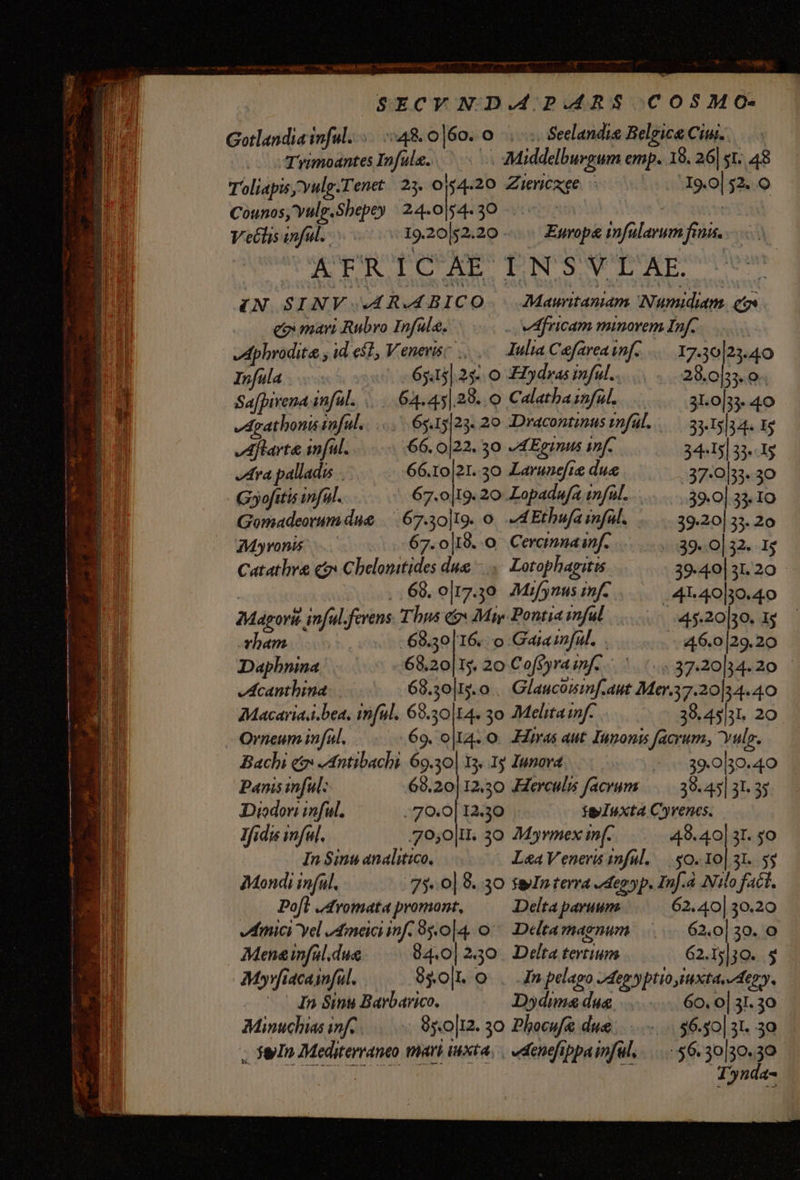 SECVNDA PARS COSMO-
Gotlandia inſul. 48. 0|60. 0
Trimoantes Inſulæ.
Toliapis, vulg. Tenet 23. 0|54.20
Counos, vulg. Shepey 24.0|54.30
Vectis inſul. 19.20|52.20
Seelandiæ Belgicæ Ciui.
Middelburgum emp. 18. 26|51. 48
Ziericxee 19.0|52. 0
Europæ inſularum finis.
AFRICAE INSVLAE.
IN SINV ARABICO
& mari Rubro Inſulæ.
Aphroditæ, id eſt, Veneris
Inſula 65.15|25. 0
Saſpirena inſul. 64.45|28. 0
Agathonis inſul. 65.15|23. 20
Aſtarte inſul. 66. 0|22. 30
Ara palladis 66.10|21. 30
Gyoſitis inſul. 67.0|19. 20
Gomadeorum duæ 67.30|19. 0
Myronis 67.0|18. 0
Catathræ & Chelonitides duæ
68. 0|17.30
Magorũ inſul. ferens Thus & Mir
rham 68.30|16. 0
Daphnina 68.20|15. 20
Acanthina 68.30|15.0
Macaria.i.bea. inſul. 68.30|14. 30
Orneum inſul. 69. 0|14. 0
Bachi & Antibachi 69.30|13. 15
Panis inſul: 68.20|12.30
Diodori inſul. 70.0|12.30
Iſidis inſul. 70,0|11. 30
In Sinu analitico.
Mondi inſul. 75. 0|8. 30
Poſt Aromata promont.
Amici vel Ameici inſ. 85.0|4. 0
Menæ inſul. duæ 84.0|2.30
Myrſiaca inſul. 85.0|1. 0
In Sinu Barbarico.
Minuchias inſ. 85.0|12. 30
In Mediterraneo mari iuxta
Mauritaniam Numidiam &
Africam minorem Inſ.
Iulia Cæſarea inſ. 17.30|23.40
Hydras inſul. 28.0|33. 0
Calatha inſul. 31.0|33. 40
Dracontinus inſul. 33.15|34. 15
Æginus inſ. 34.15|33. 15
Laruneſiæ duæ 37.0|33. 30
Lopaduſa inſul. 39.0|33. 10
Æthuſa inſul. 39.20|33. 20
Cercinna inſ. 39. 0|32. 15
Lotophagitis 39.40|31. 20
Miſynus inſ. 41.40|30.40
Pontia inſul 45.20|30. 15
Gaia inſul. 46.0|29.20
Coſſyra inſ. 37.20|34.20
Glaucõis inſ. aut Mer.37.20|34.40
Melita inſ. 38.45|31. 20
Hiras aut Iunonis ſacrum, vulg.
Iunora 39.0|30.40
Herculis ſacrum 38.45|31. 35
Iuxta Cyrenes.
Myrmex inſ. 48.40|31. 50
Lea Veneris inſul. 50. 10|31. 55
In terra Aegyp. Inſ. à Nilo fact.
Delta paruum 62.40|30.20
Delta magnum 62.0|30. 0
Delta tertium 62.15|30. 5
In pelago Aegyptio, iuxta Aegy.
Dydimæ duæ 60. 0|31.30
Phocuſæ duæ 56.50|31. 30
Aeneſippa inſul. 56. 30|30. 30
Tynda-